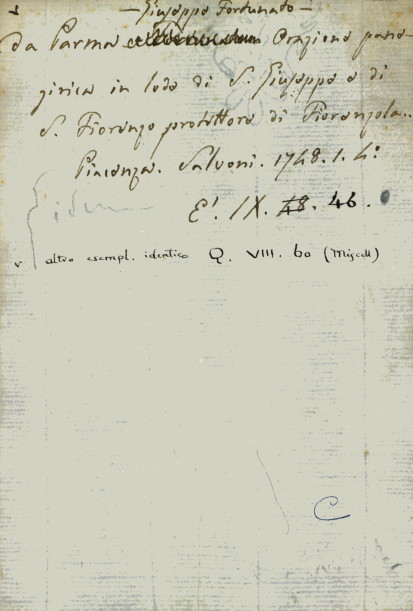 — Giuseppe Fortunato —
da Parma Orazione pane-
girica in lode di S. Giuseppe e di
S. Fiorenzo protettore di Fiorenzola..
Piacenza. Salvoni. 1748. 1. 4.º
E'. IX. 48. 46.
idem
altro esempl. identico Q. VIII. 60 (Miscell)
C